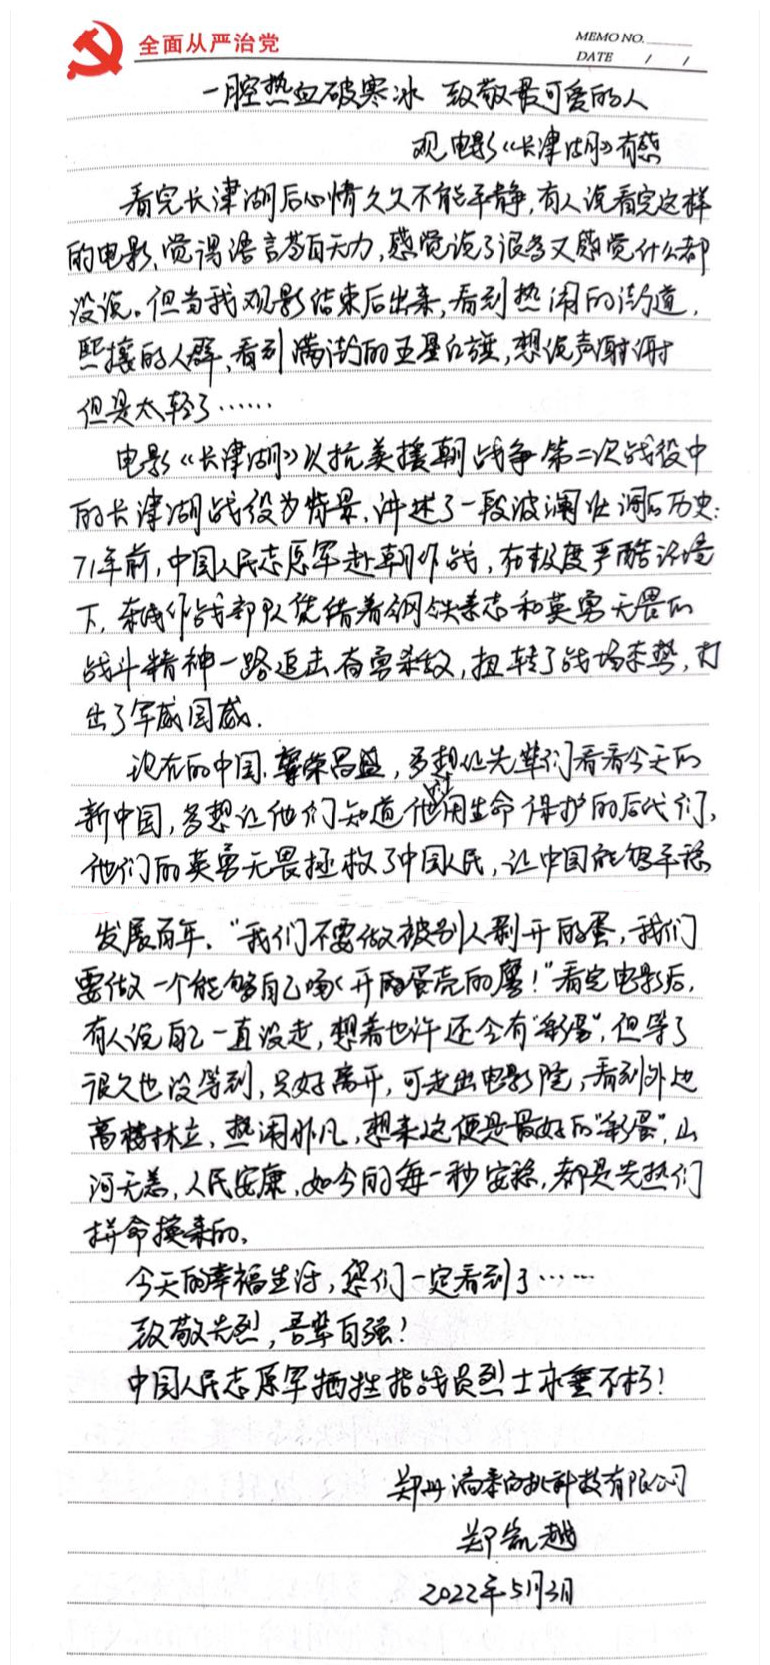 全面从严治党
MEMO NO.
DATE / /
一腔热血破寒冰 致敬最可爱的人
观电影《长津湖》有感
看完长津湖后心情久久不能平静,有人说看完这样
的电影,觉得语言苍白无力,感觉说了很多又感觉什么都
没说。但当我观影结束后出来,看到热闹的街道,
熙攘的人群,看到满街的五星红旗,想说声谢谢
但是太轻了……
电影《长津湖》以抗美援朝战争第二次战役中
的长津湖战役为背景,讲述了一段波澜壮阔历史:
71年前,中国人民志愿军赴朝作战,在极度严酷环境
下,东线作战部队凭借着钢铁意志和英勇无畏的
战斗精神一路追击,奋勇杀敌,扭转了战场态势,打
出了军威国威.
现在的中国,繁荣昌盛,多想让先辈们看看今天的
新中国,多想让他们知道他们用生命保护的后代们,
他们的英勇无畏拯救了中国人民,让中国能够平稳
发展百年."我们不要做被别人剥开的蛋,我们
要做一个能够自己啄开蛋壳的鹰!"看完电影后,
有人说自己一直没走,想着也许还会有"彩蛋",但等了
很久也没等到,只好离开,可走出电影院,看到外边
高楼林立,热闹非凡,想来这便是最好的"彩蛋",山
河无恙,人民安康,如今的每一秒安稳,都是先热们
拼命换来的,
今天的幸福生活,您们一定看到了……
致敬先烈,吾辈自强!
中国人民志愿军牺牲指战员烈士永垂不朽!
科技有限公司
郑凯越
2022年5月3日